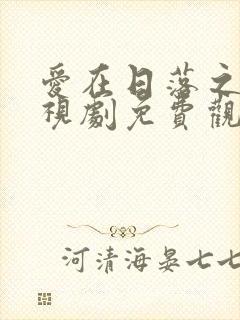 愛在日落之
視劇免費觀
河清海晏七七